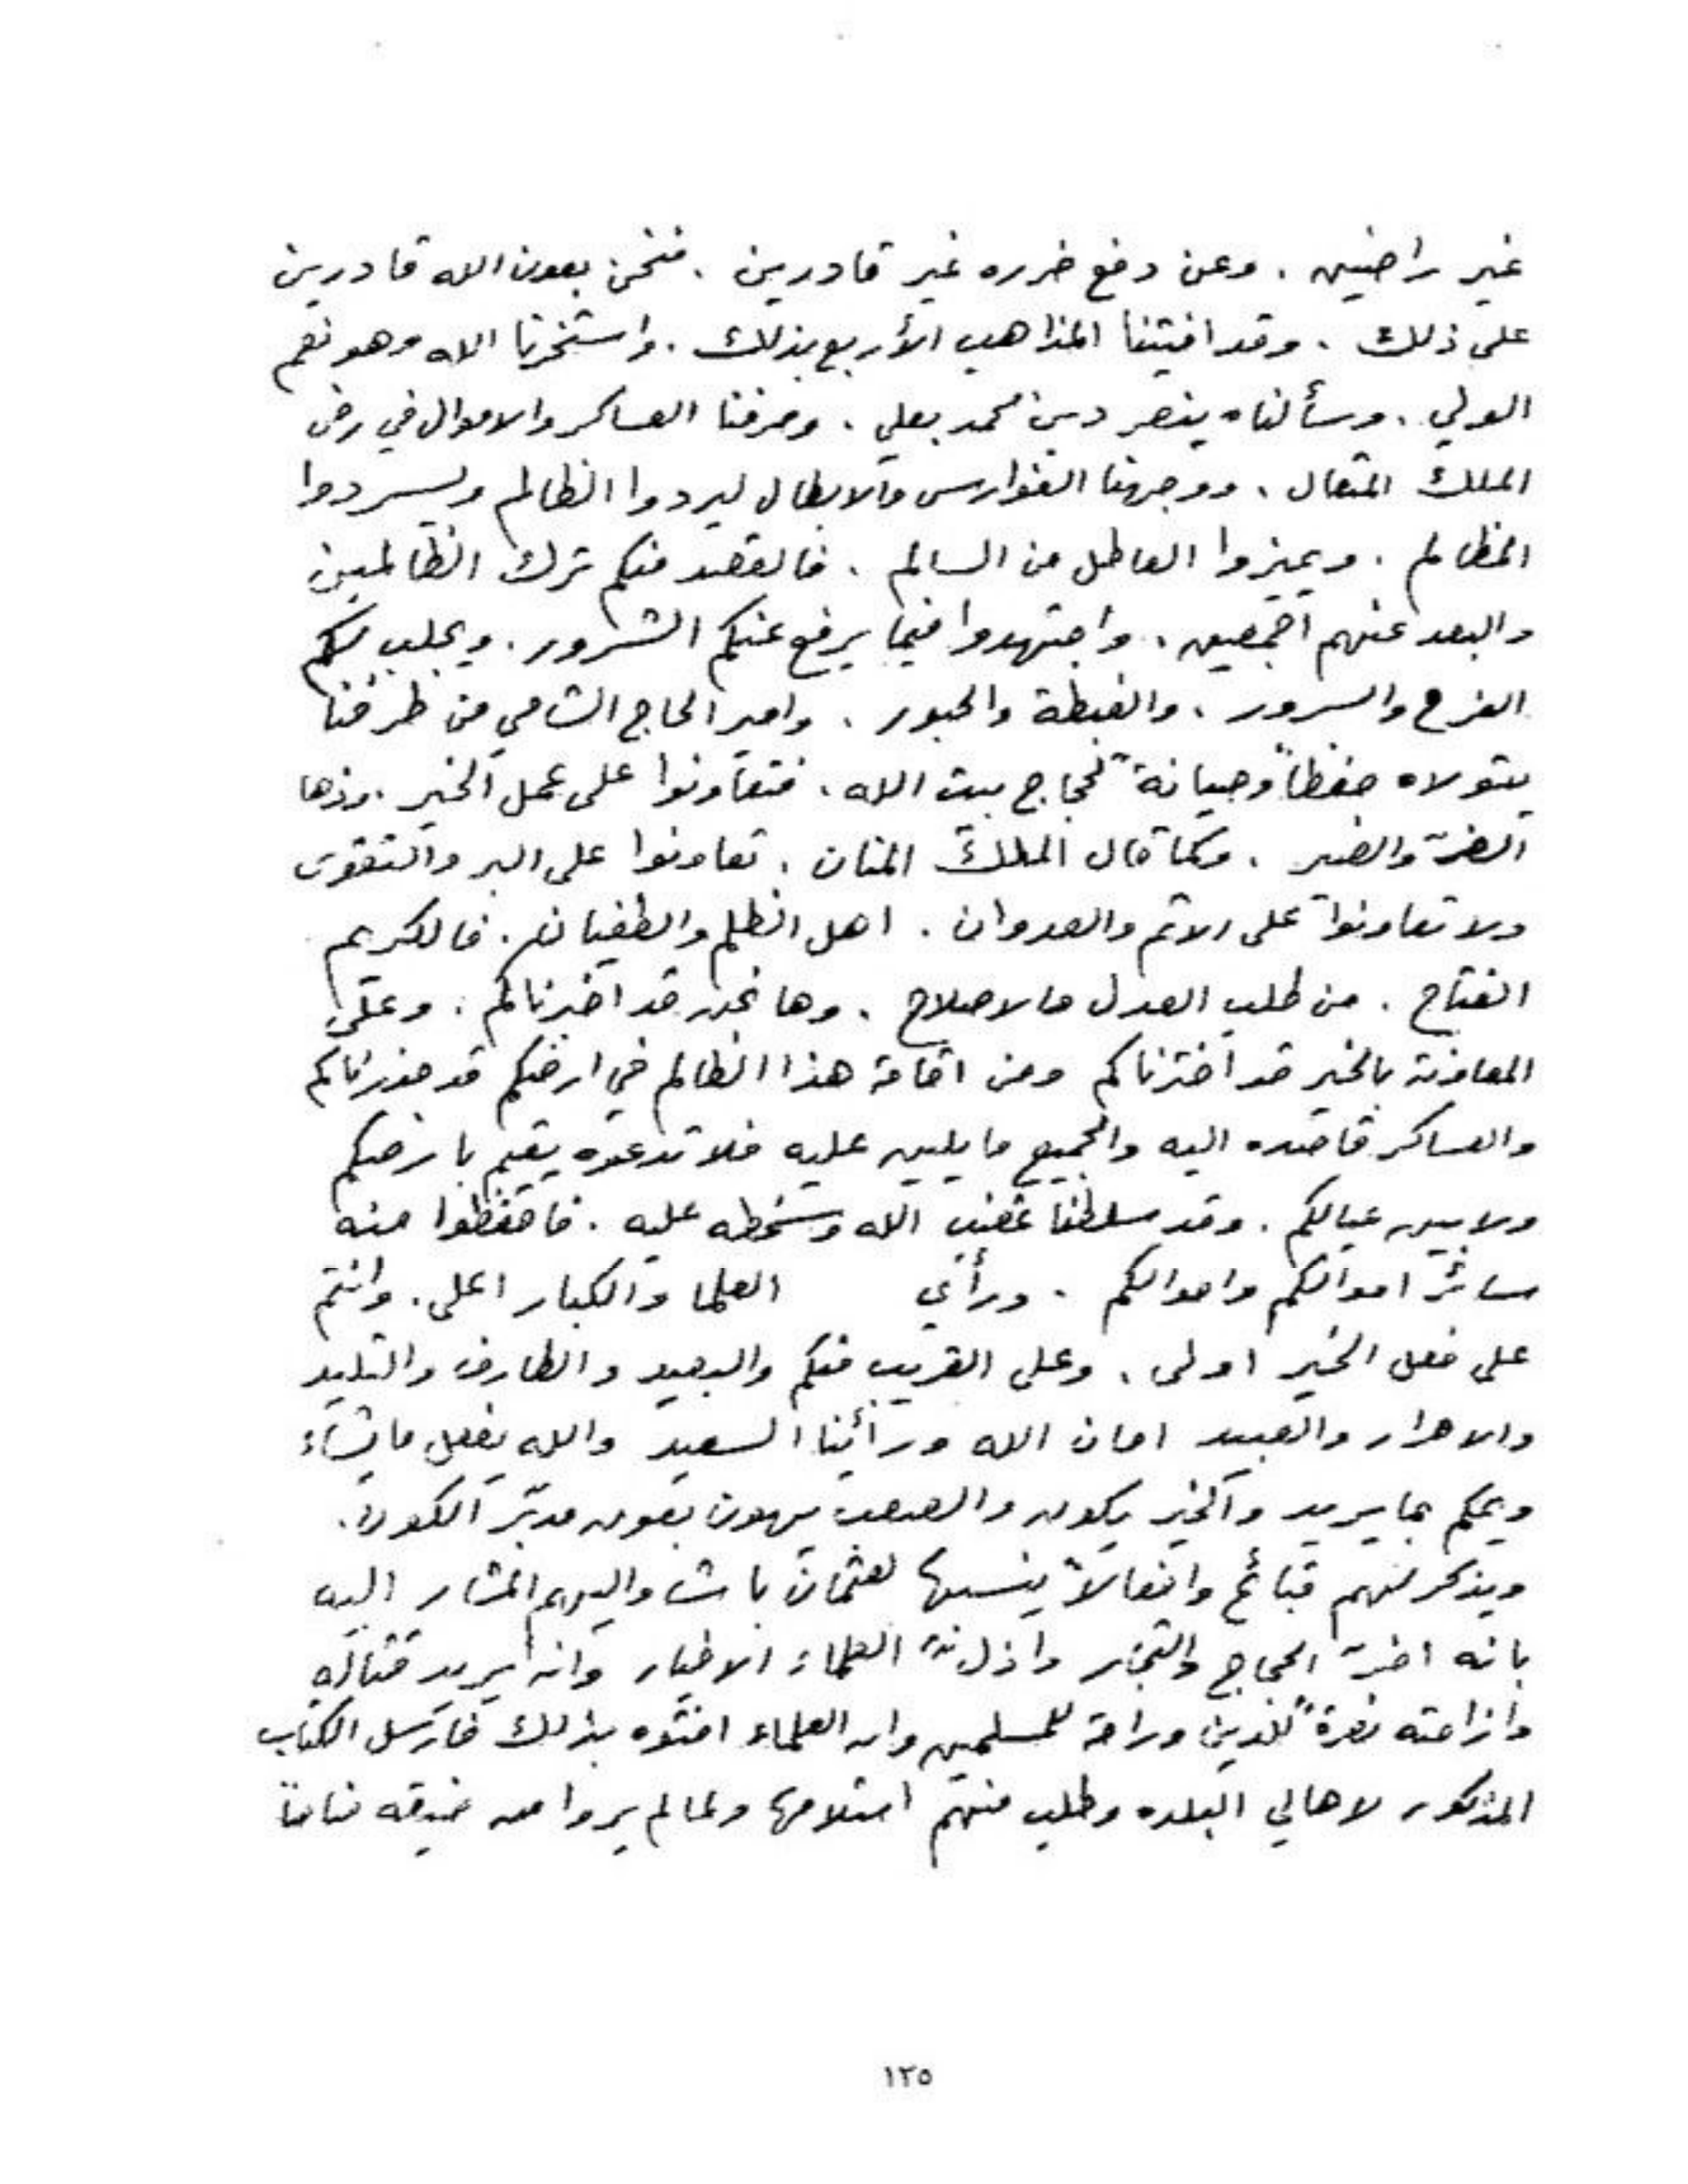 غير راضين . وعن دفع ضرره غير قادرين . فنحن بعون الله قادرين
على ذلك . وقد افتينا المذاهب الأربع بذلك . واستخرنا الله وهو نعم
الولي . وسألناه ينصر دين محمد بعلي . وصرفنا العساكر والاموال في رضى
الملك المتعال . ووجهنا الفوارس والابطال ليردوا الظالم ويستردوا
المظالم . ويميزوا العاطل من السالم . فالقصد منكم ترك الظالمين
والبعد عنهم اجمعين . واجتهدوا فيما يرفع عنكم الشرور . ويجلب لكم
الفرح والسرور . والغبطة والحبور . وامير الحاج الشامي من طرفنا
يتولاه حفظاً وصيانةً لحجاج بيت الله . فتعاونوا على عمل الخير .
الضرّ والضير . وكما قال الملك المنان . تعاونوا على البر والتقوى
ولا تعاونوا على الاثم والعدوان . اهل الظلم والطغيان . فالكريم
الفتاح . من طلب العدل والاصلاح . وها نحن قد اخبرناكم . وعلى
المعاونة بالخير قد اخترناكم ومن اقامة هذا الظالم في ارضكم قد حذرناكم
والعساكر قاصده اليه والجميع مايلين عليه فلا تدعوه يقيم بارضكم
ولا بين عيالكم . وقد سلطنا غضب الله وسخطه عليه . فاحفظوا منه
سائر اموالكم واحوالكم . ورأي العلما والكبار اعلى . وانتم
على فعل الخير اولى . وعلى القريب منكم والبعيد والطارف والتليد
والاحرار والعبيد امان الله ورأينا السعيد والله يفعل ما يشاء
ويحكم بما يريد والخير يكون والصعب يهون بعون مدبّر الكون .
ويذكر لهم قبائح وافعالاً ينسبها لعثمان باشا واليهم المشار اليه
بانه اضرّ الحجاج والتجار واذل العلماء الاخيار وانه يريد قتاله
وازاحته نصرةً للدين وراحة للمسلمين وان العلماء افتوه بذلك فارسل الكتاب
المذكور لاهالي البلده وطلب منهم استلامها ولما لم يروا من ضيقه مناصاً
١٢٥